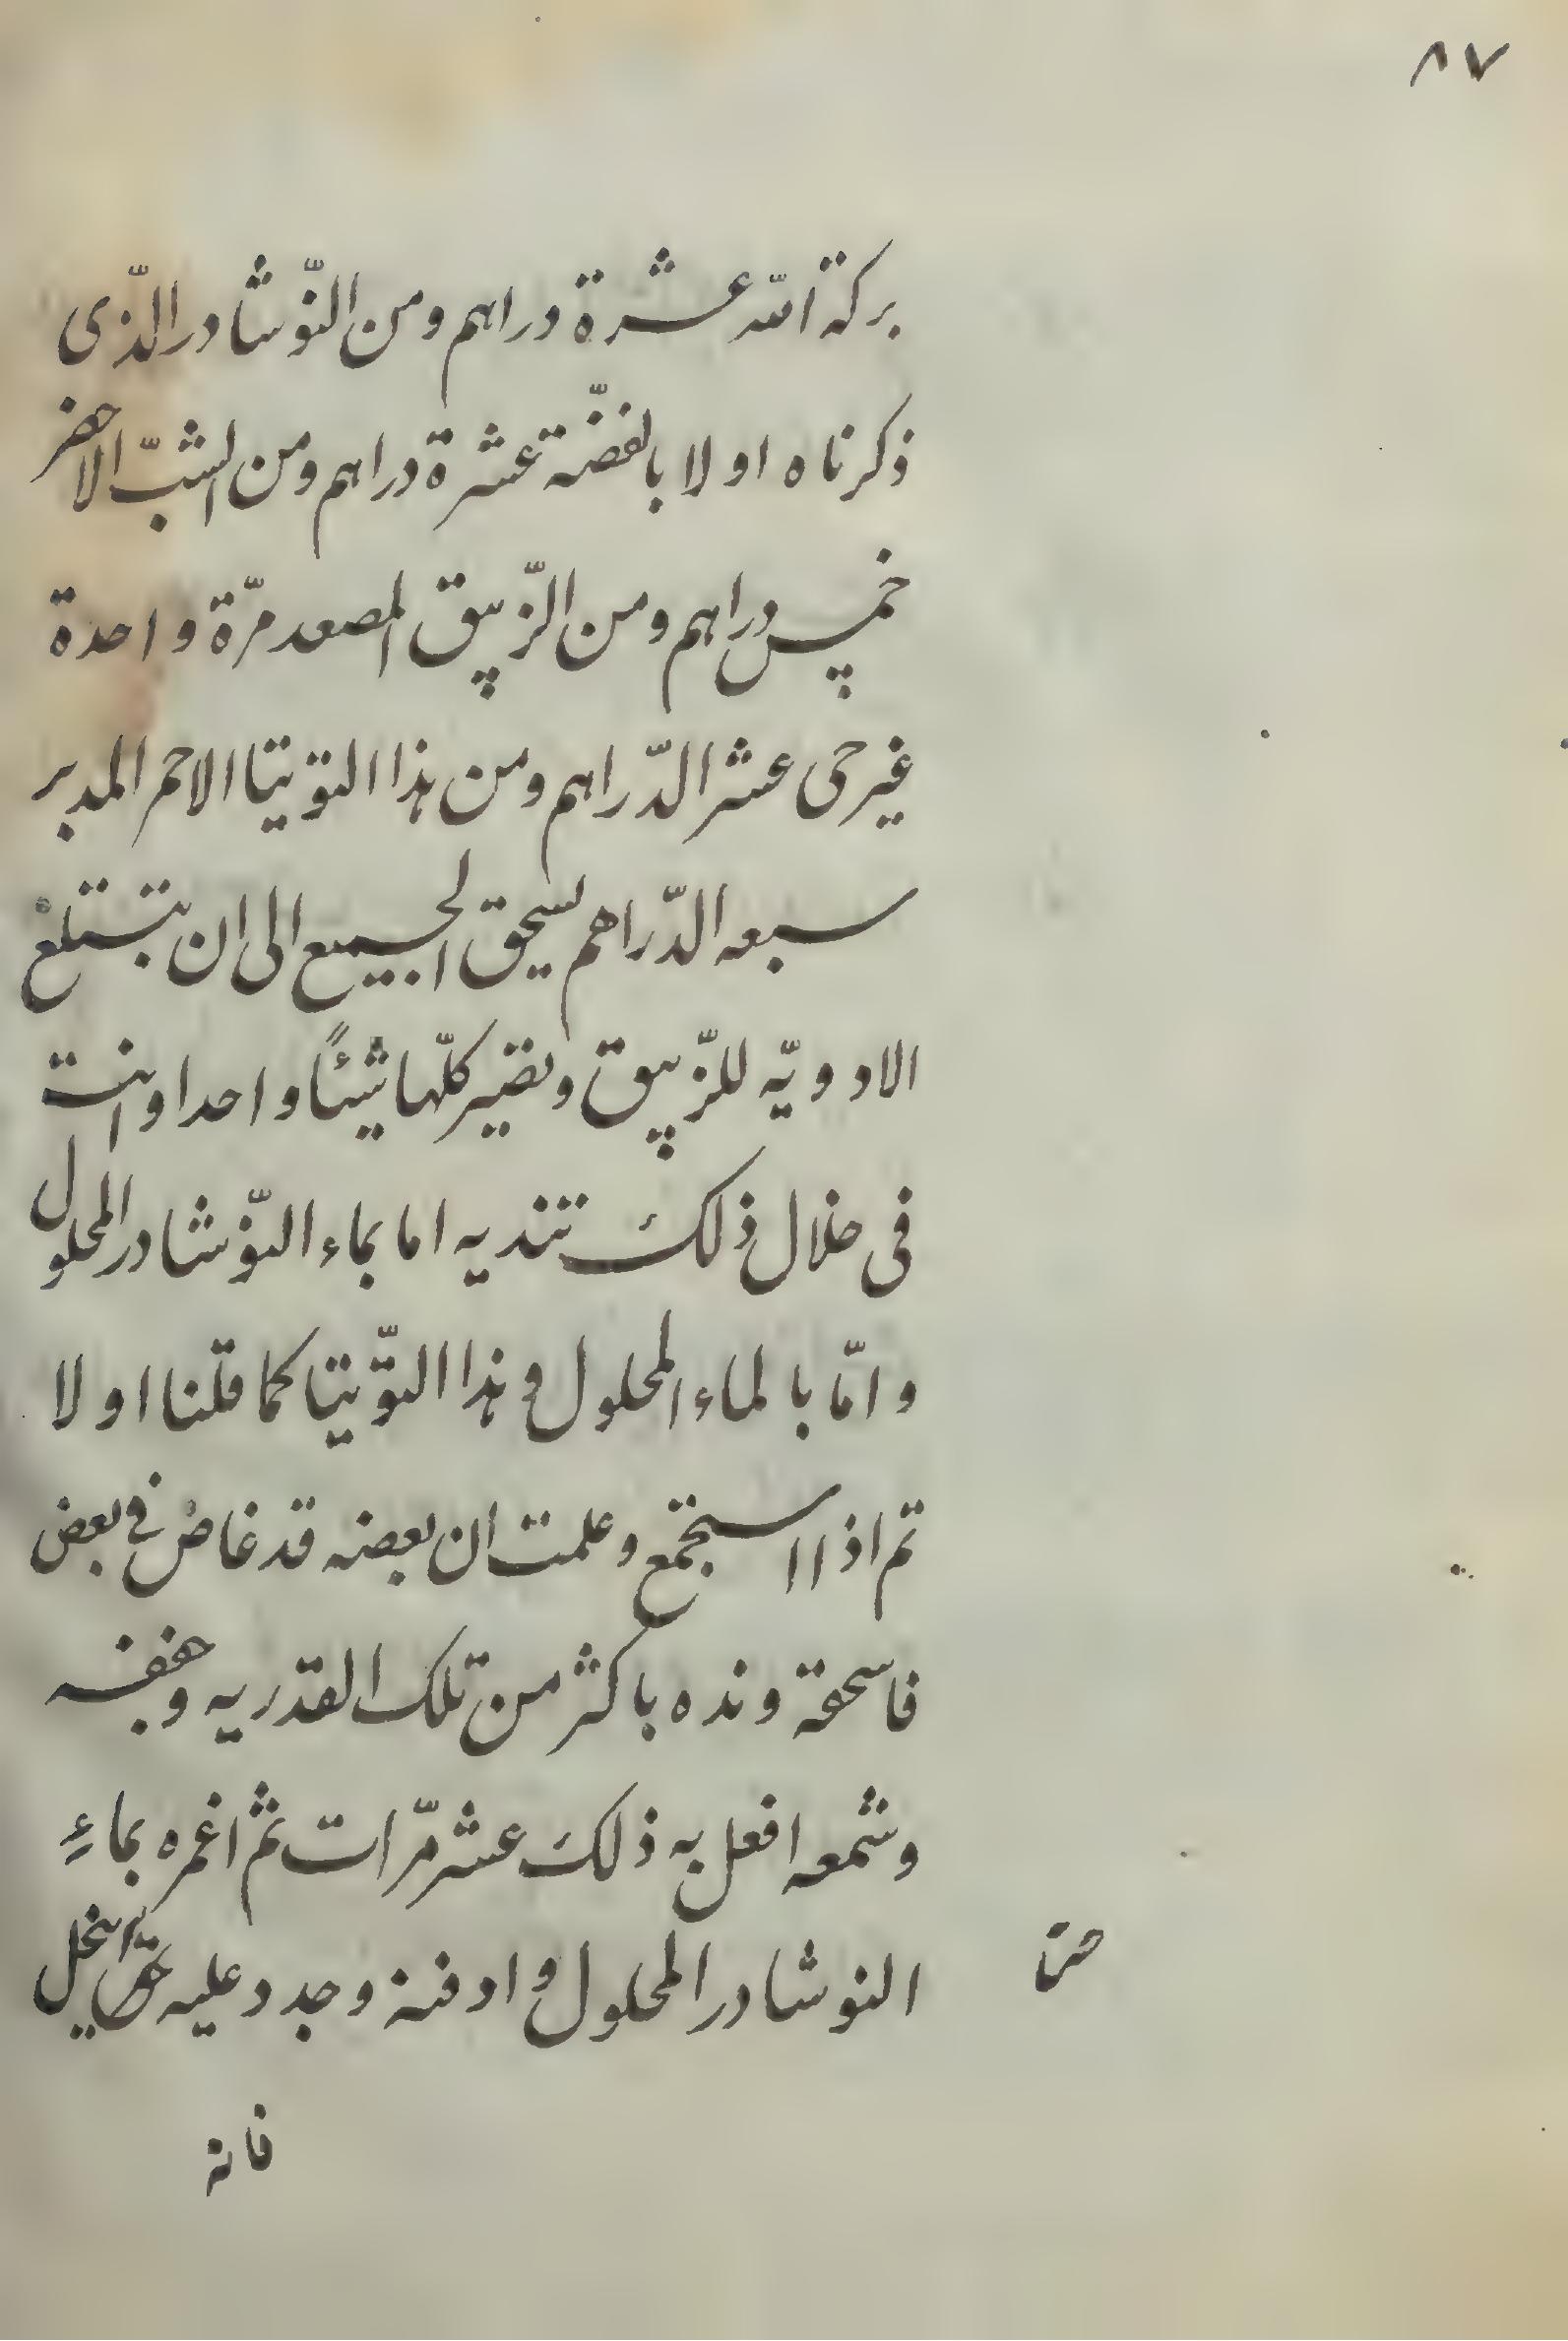 ٨٧
بركة الله عشرة دراهم ومن النّوشادر الّذى
ذكرناه اولا بالفضّة عشرة دراهم ومن الشبّ الاخضر
خمس دراهم ومن الزّيبق المصعد مرّة واحدة
غير حى عشر الدّراهم ومن هذا التوتيا الاحمر المدبر
سبعه الدّراهم يسحق الجميع الى ان تبتلع
الادوويّه للزّيبق وتصير كلّها شيئًا واحدا وانت
فى خلال ذلك تنديه اما بماء النّوشادر المحلول
وامّا بالماء المحلول فى هذا التّوتيا كما قلنا اولا
ثم اذا استجمع وعلمت ان بعضه قد غاص فى بعض
فاسحقة ونده باكثر من تلك القدريه وجففه
وشمعه افعل به ذلك عشر مّرات ثم اغمره بماءِ
النوشادر المحلول وادفنه وجدد عليه حتى ينحل
فانه